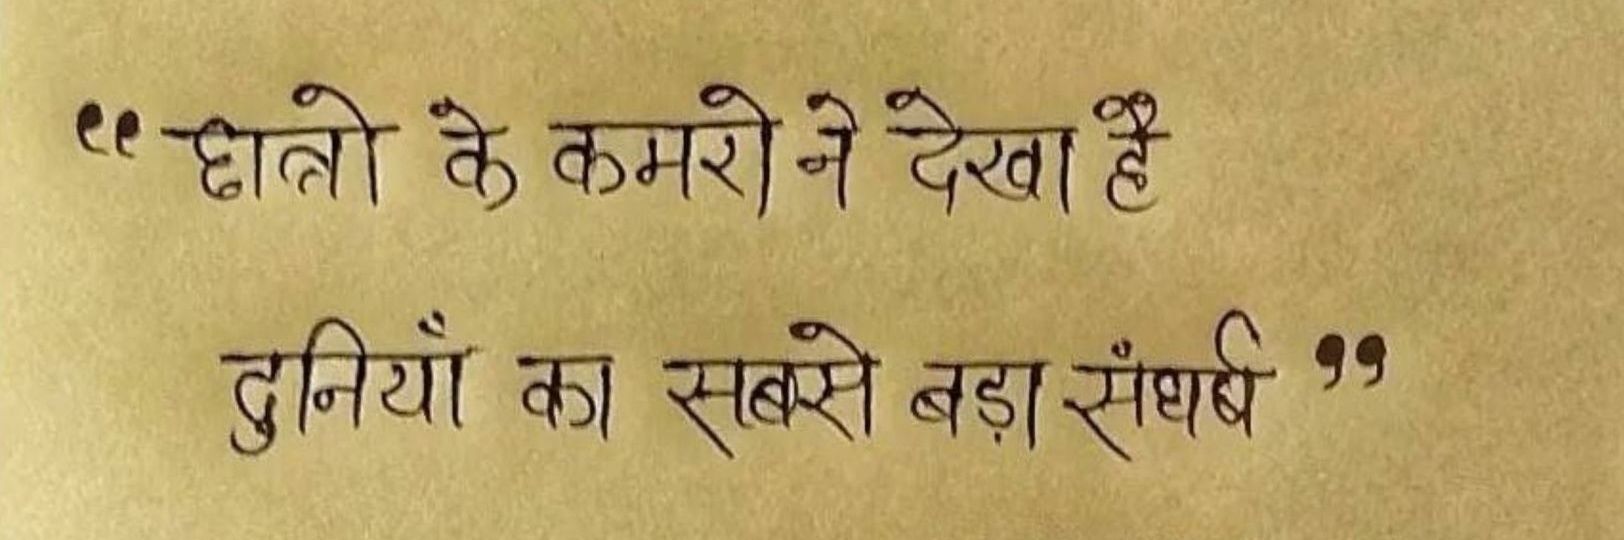 “छात्रो के कमरो ने देखा है
दुनियाँ का सबसे बड़ा संघर्ष”